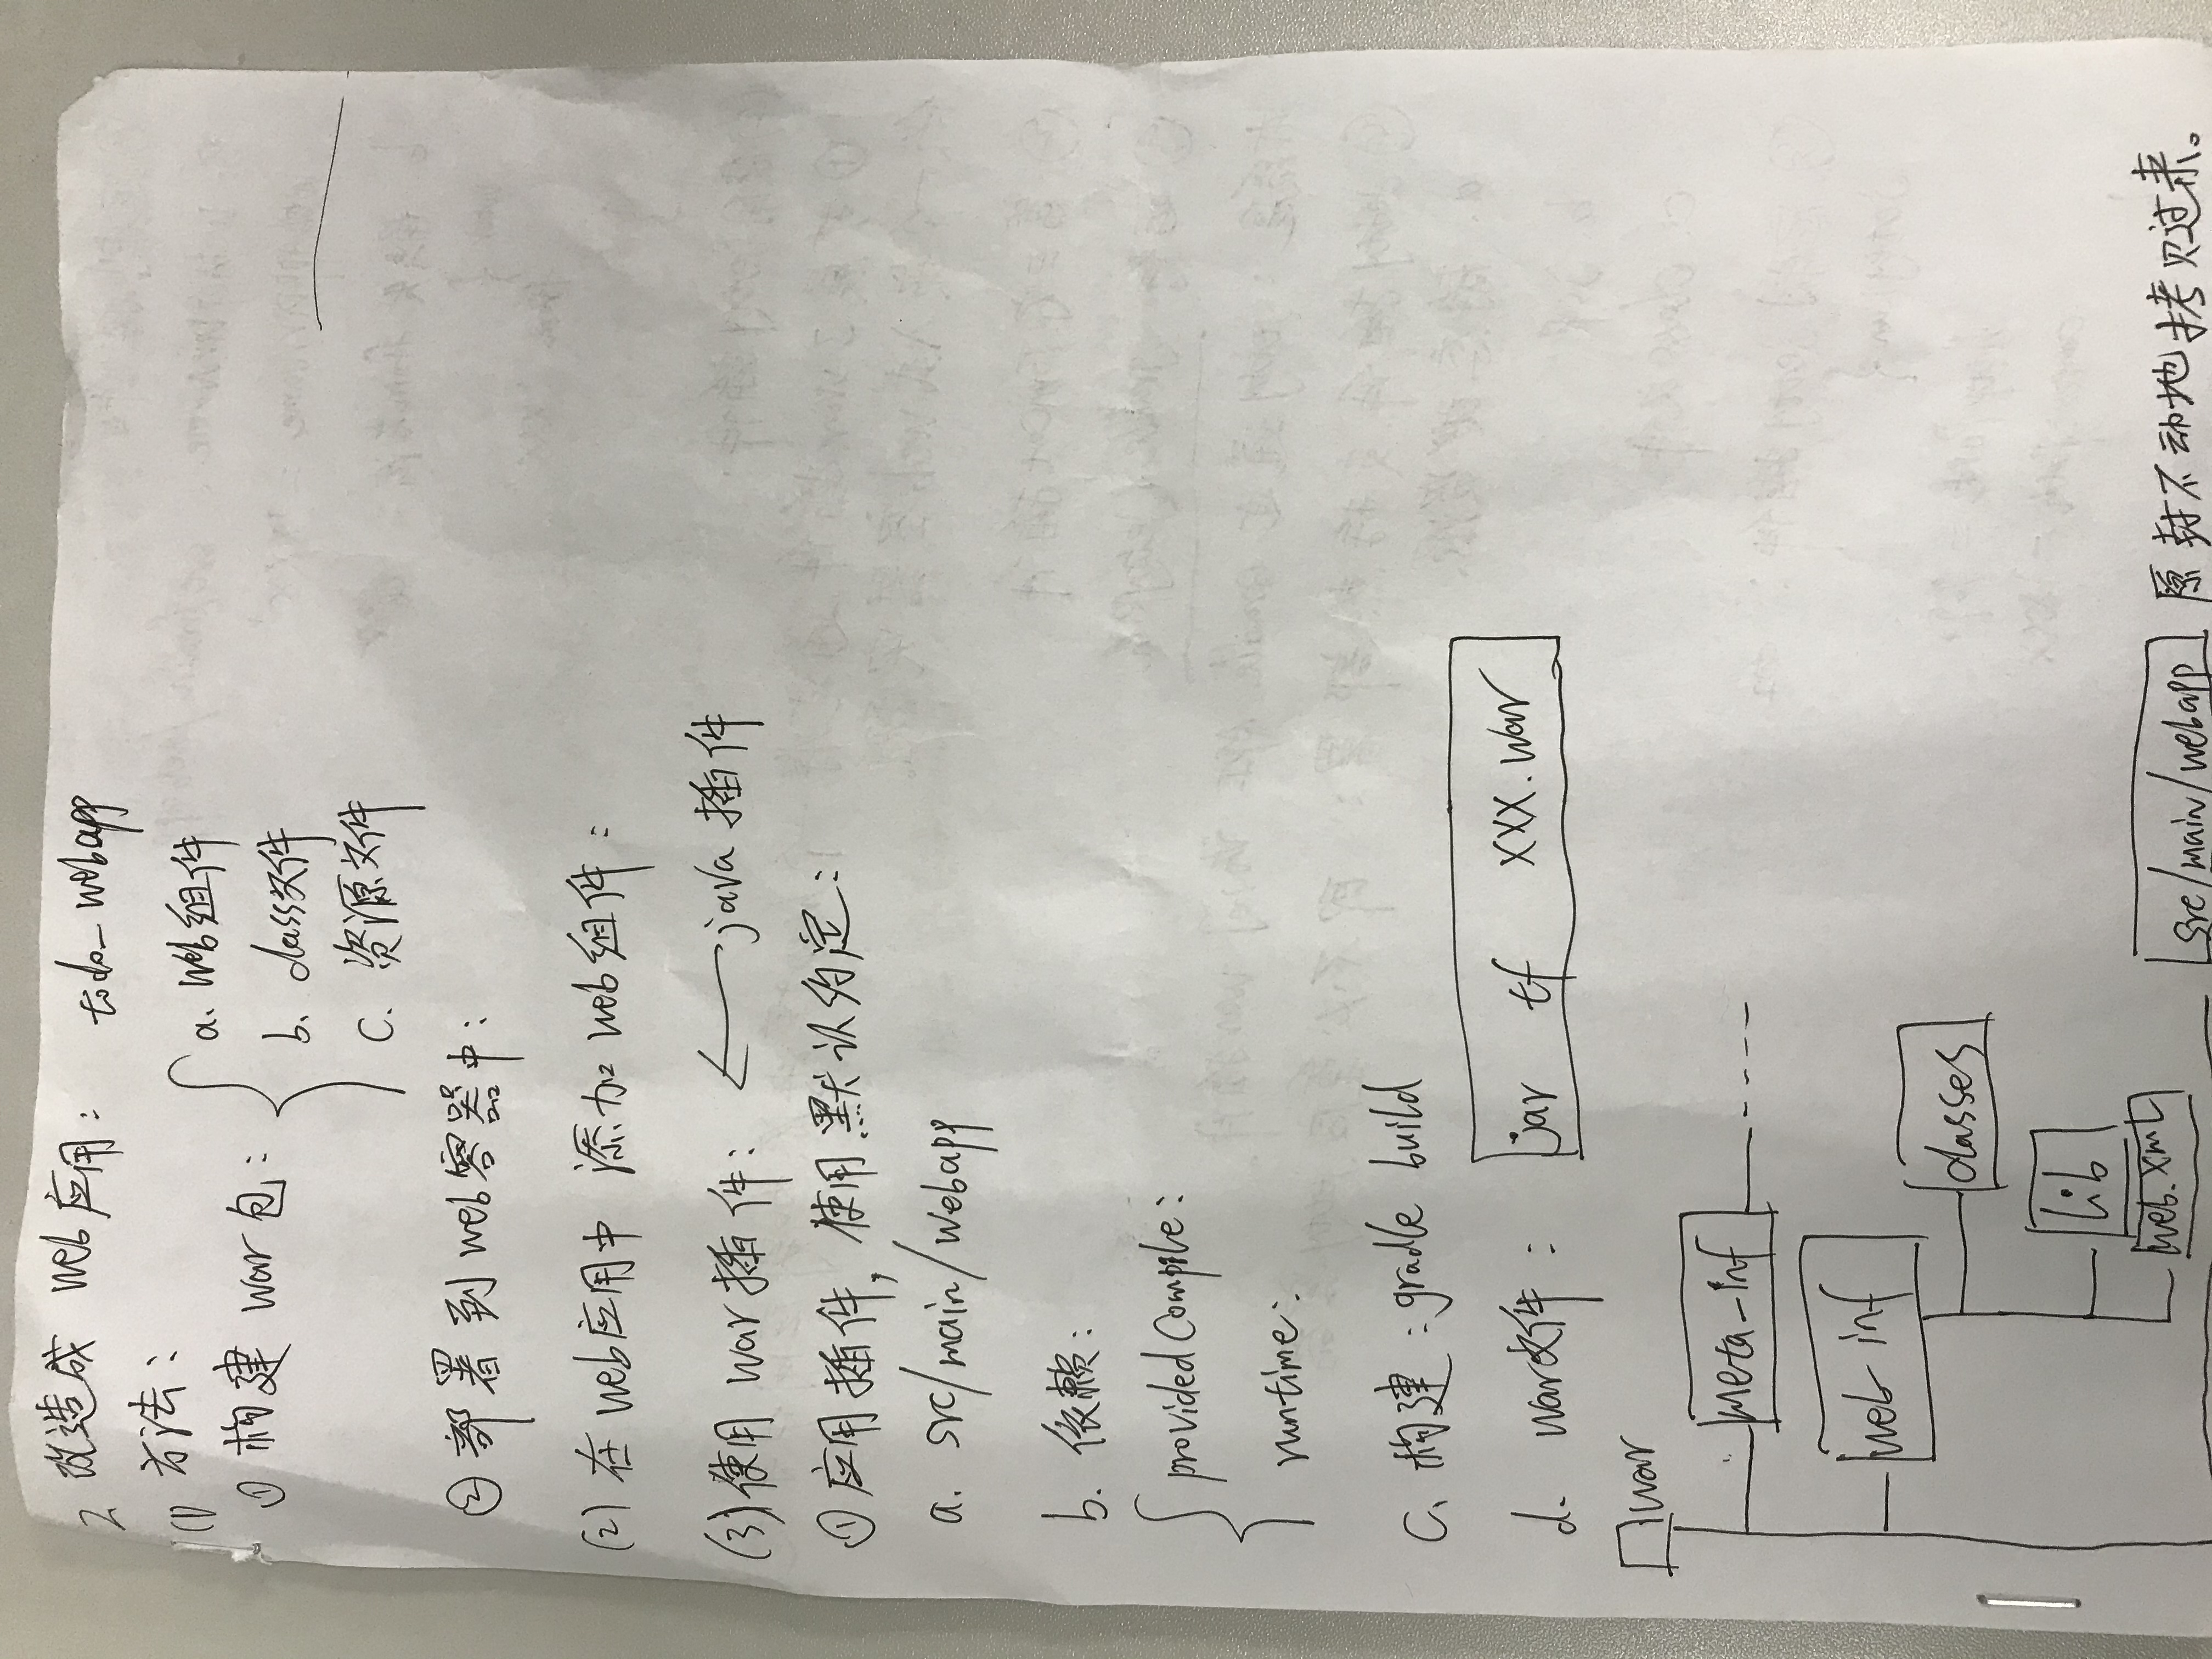 2 改造成 web应用： todo_webapp
(1) 方法：
① 构建 war包：
a. web组件
b. class文件
c. 资源文件
② 部署到web容器中：
(2) 在web应用中 添加web组件：
(3) 使用 war插件： ← java 插件
① 应用插件，使用默认约定：
a. src/main/webapp
b. 依赖：
providedCompile：
runtime：
c、构建：gradle build
d. war文件： jar tf XXX.war
war
meta-inf
web inf
classes
lib
web.xml
src/main/webapp 原封不动地拷贝过来。